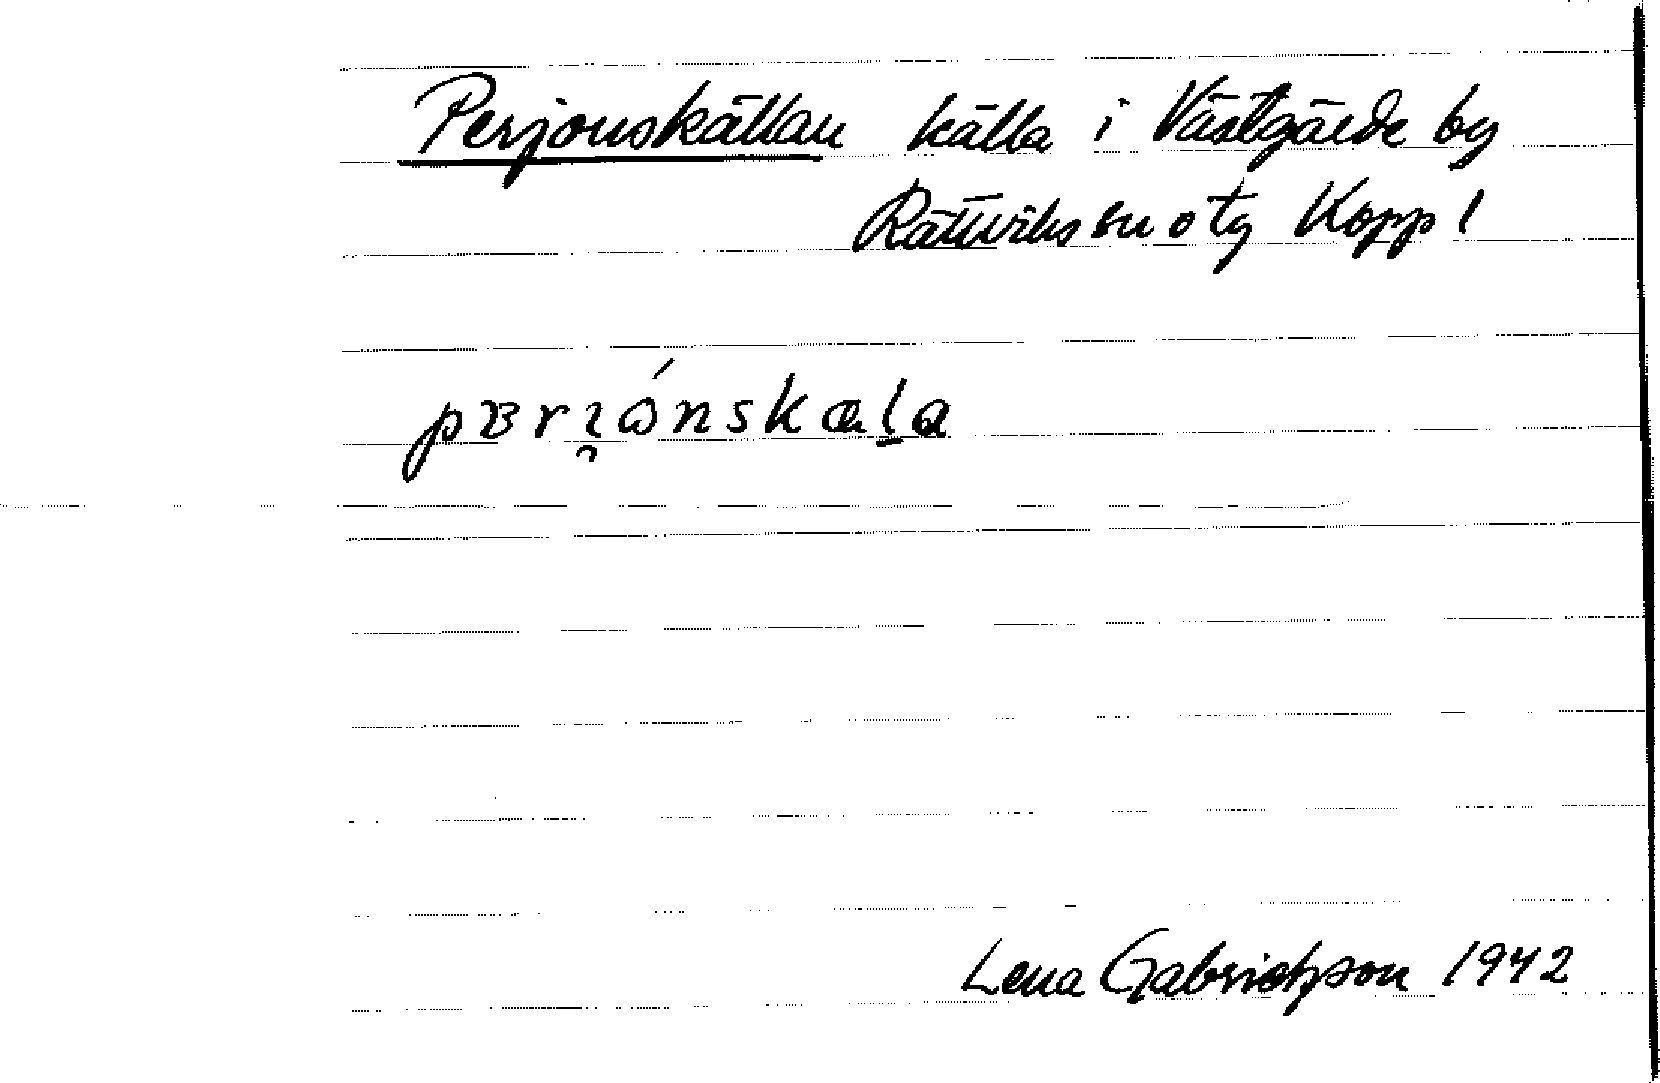 Perjonskällan källa i Västgärde by
Rättviks sn o tg Kopp l
pɐri̯ónskæl̠a
Lena Gabrielsson 1942